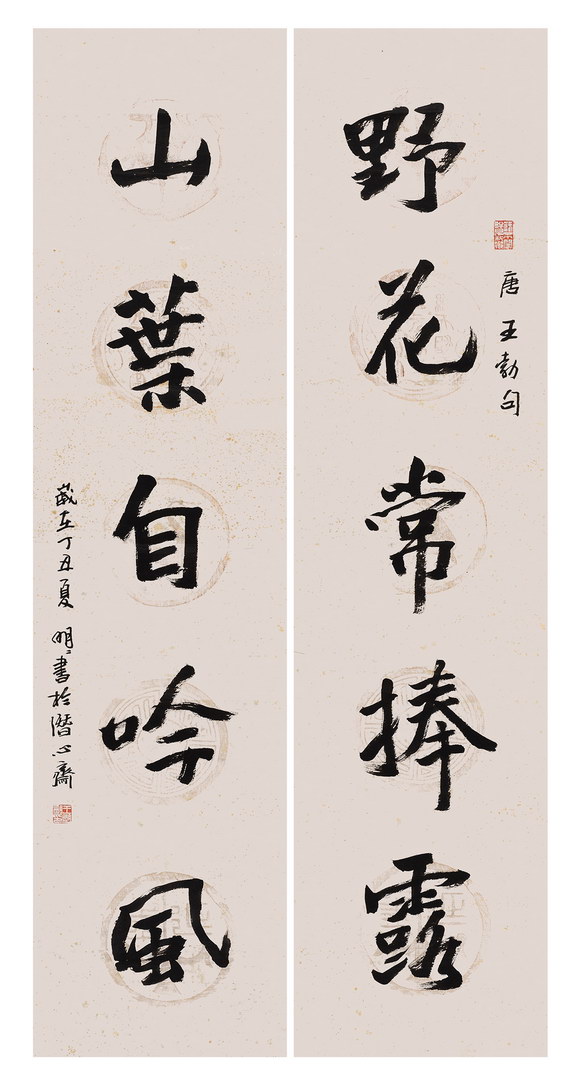 野花常捧露
唐王勃句
山葉自吟風
歲在丁丑夏明明書於潛心齋